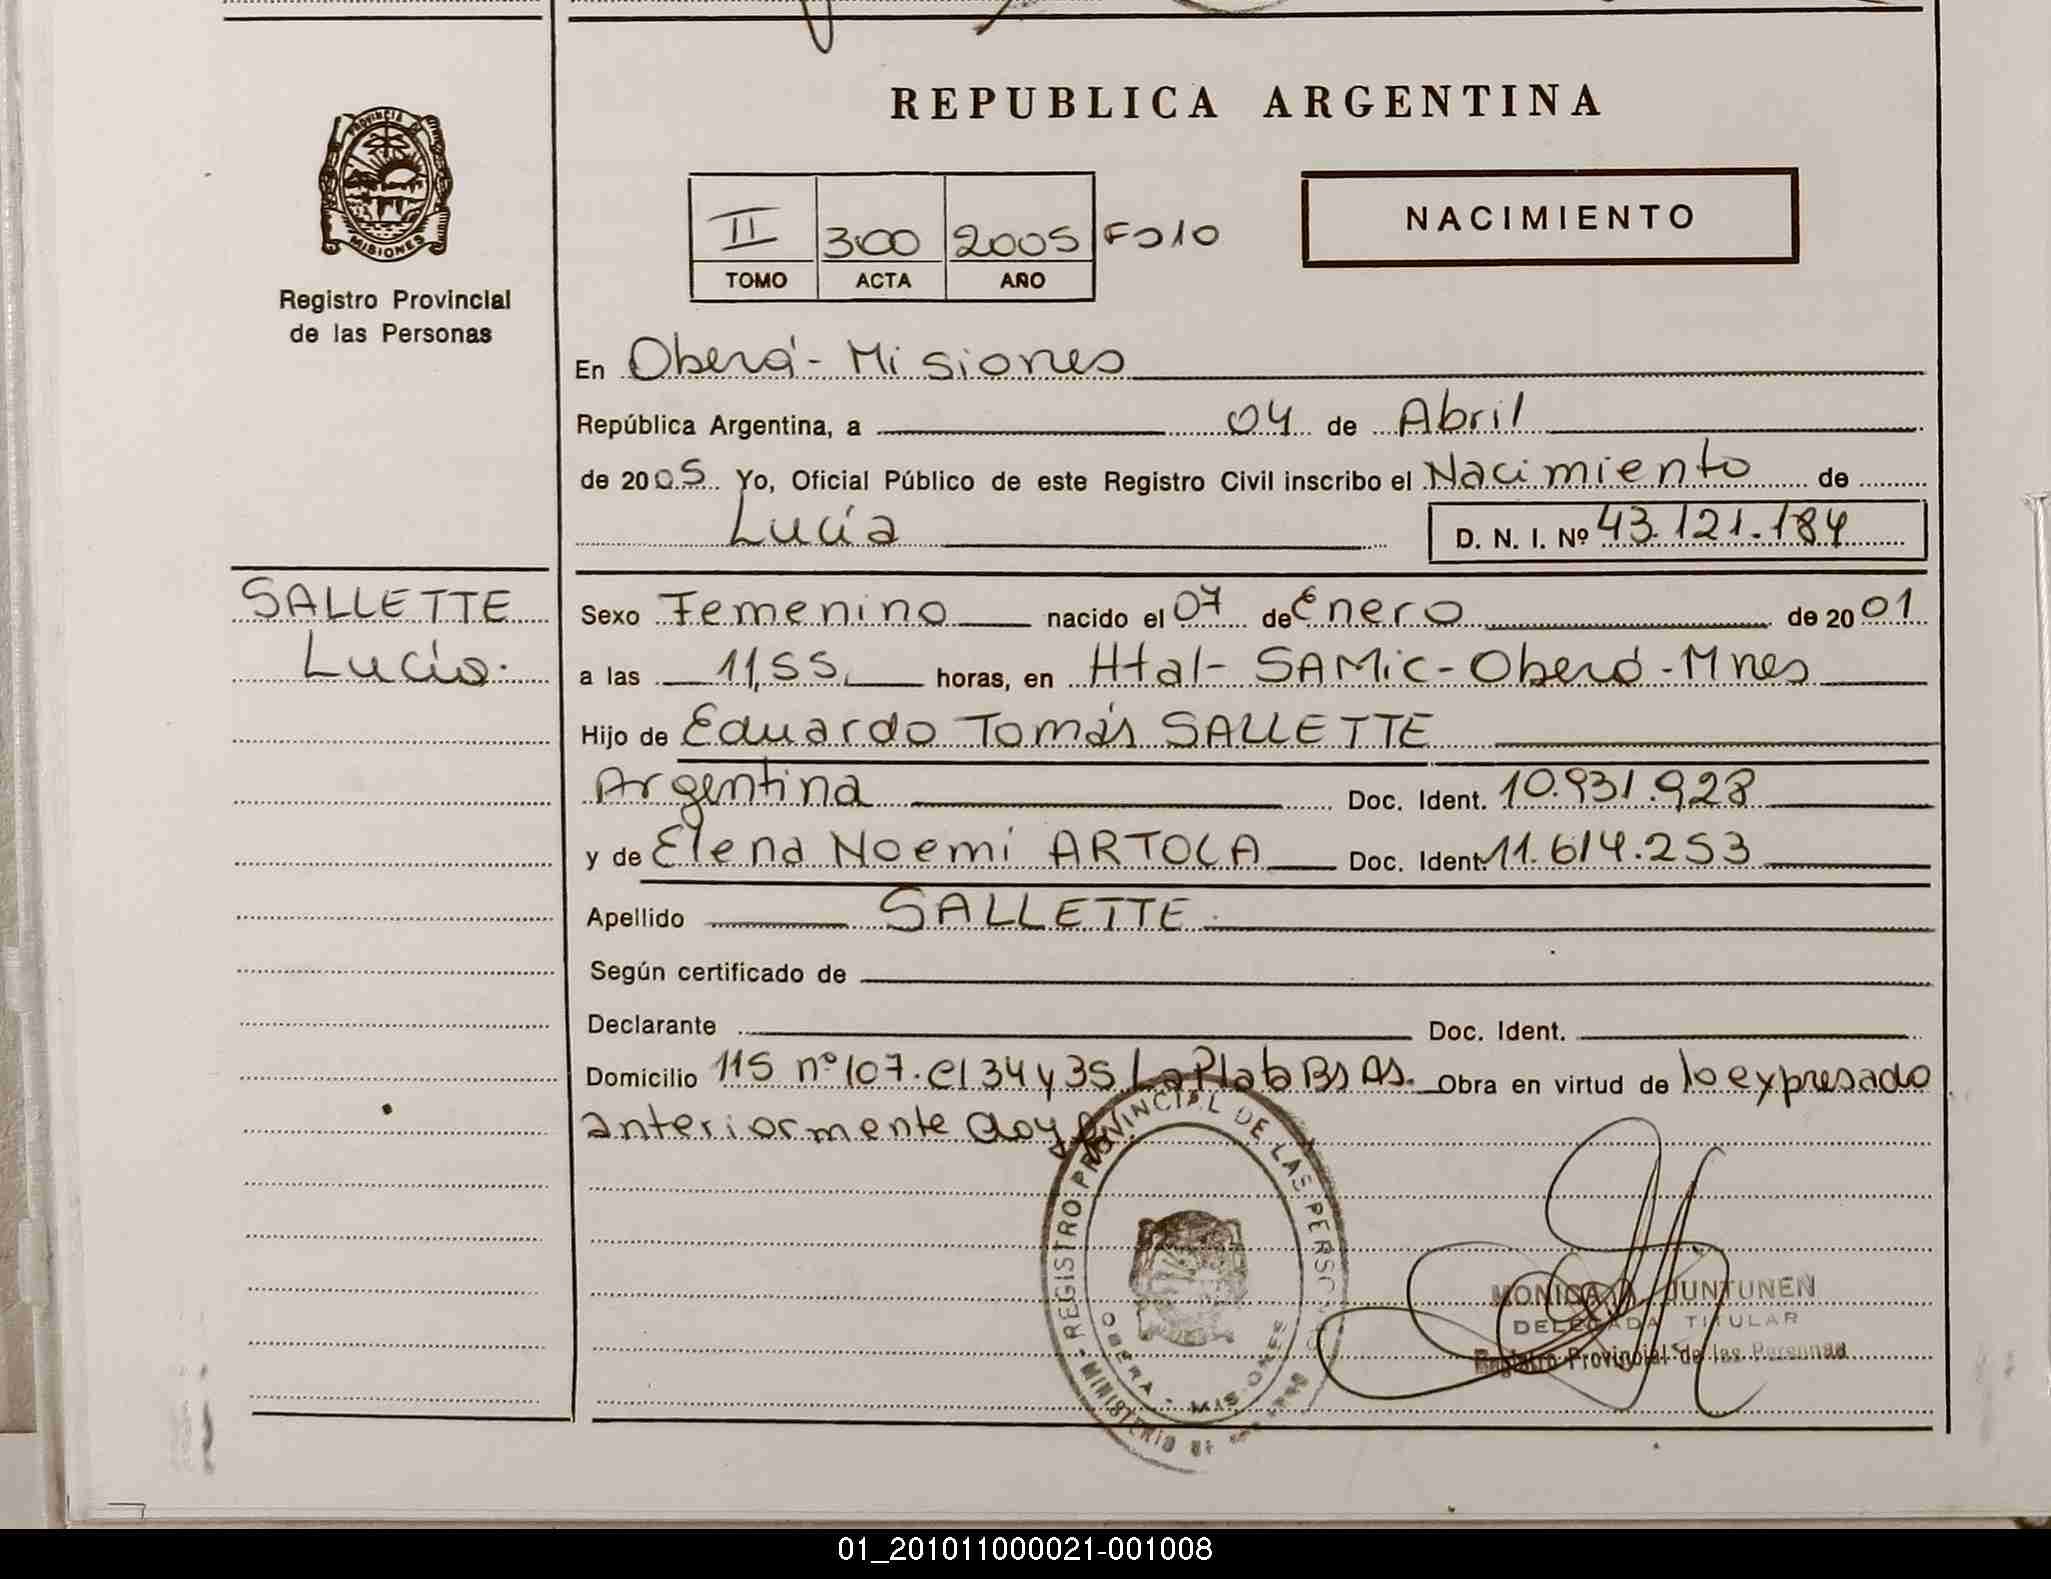 REPUBLICA ARGENTINA
PROVINCIA DE
MISIONES
Registro Provincial
de las Personas
II 300 2005 Fo10
TOMO ACTA AÑO
NACIMIENTO
En Oberá - Misiones
República Argentina, a 04 de Abril
de 2005 Yo, Oficial Público de este Registro Civil inscribo el Nacimiento de
Lucía D. N. I. Nº 43.121.184
SALLETTE
Lucía.
Sexo Femenino nacido el 07 de Enero de 2001
a las 11,55 horas, en Htal- SAMic- Oberá - Mnes
Hijo de Eduardo Tomás SALLETTE
Argentina Doc. Ident. 10.931.928
y de Elena Noemí ARTOLA Doc. Ident. 11.614.253
Apellido SALLETTE
Según certificado de
Declarante Doc. Ident.
Domicilio 115 nº 107. e/ 34 y 35 La Plata Bs As. Obra en virtud de lo expresado
anteriormente doy fe
REGISTRO PROVINCIAL DE LAS PERSO
OBERA - MISIONES
MINISTERIO DE
MONICA JUNTUNEN
DELEGADA TITULAR
Registro Provincial de las Personas
01_201011000021-001008